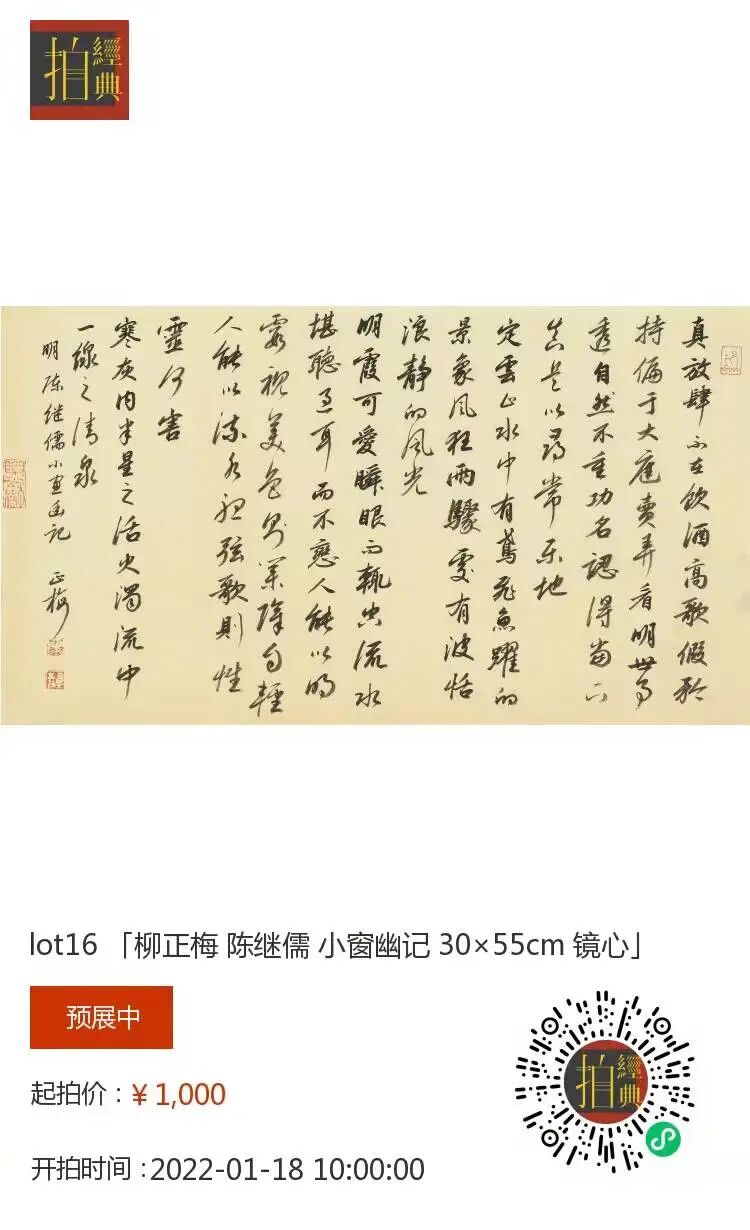 拍經典
真放肆不在飲酒高歌假矜
持偏于大庭賣弄看明世事
透自然不重功名認得當下
真是以尋常乐地
定雲止水中有鳶飛魚躍的
景象風狂雨驟處有波恬
浪靜的風光
明霞可愛瞬眼而輒空流水
堪聽過耳而不戀人能以明
霞視美色則業障自輕
人能以流水聽弦歌則性
靈何害
寒灰内半星之活火濁流中
一線之清泉
明陈继儒小窗幽记 正梅
lot16 「柳正梅 陈继儒 小窗幽记 30×55cm 镜心」
预展中
起拍价：¥ 1,000
开拍时间：2022-01-18 10:00:00
拍經典